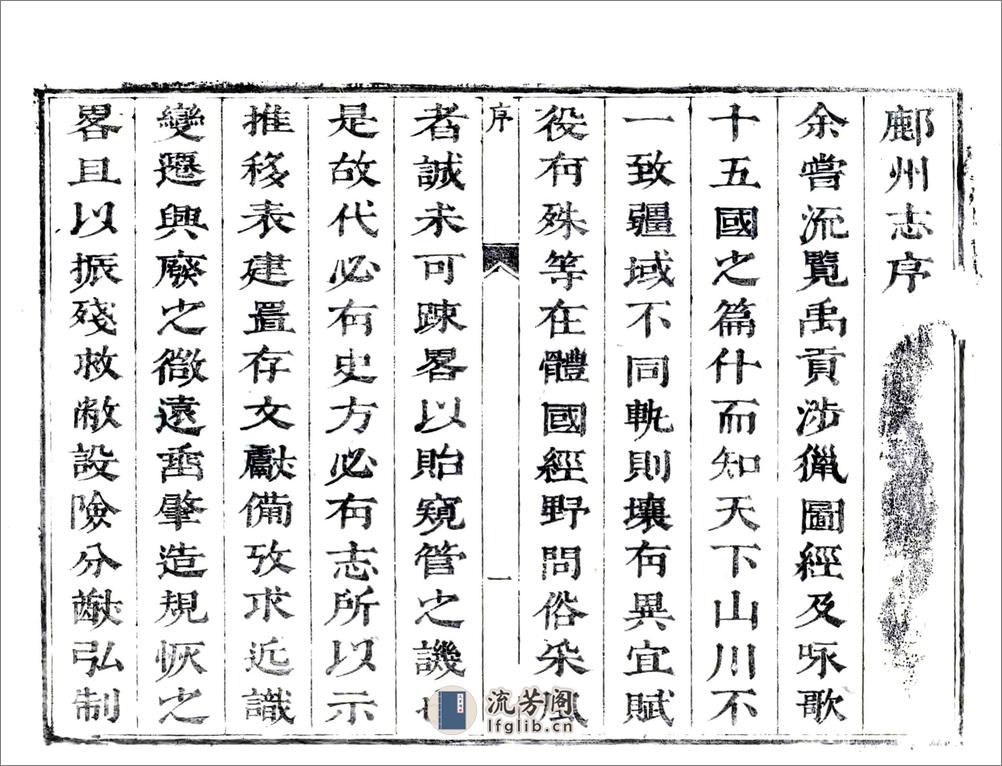 鄜州志序
余嘗流覽禹貢涉獵圖經及咏歌
十五國之篇什而知天下山川不
一致疆域不同軌則壤有異宜賦
役有殊等在體國經野問俗采風
序
一
者誠未可踈畧以貽窺管之譏也
是故代必有史方必有志所以示
推移表建置存文獻備攷求近識
變遷興廢之微遠啚肇造規恢之
畧且以振殘救敝設險分猷弘制
流芳阁
lfglib.cn